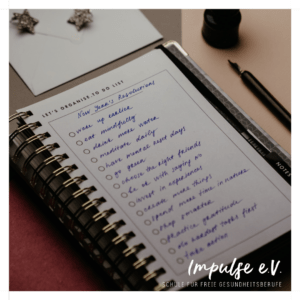 LET'S ORGANISE: TO DO LIST
New Year's Resolutions
wake up earlier
eat mindfully
drink more water
meditate daily
have mental health days
go green
choose the right friends
be ok with saying no
invest in experiences
spend more time in nature
stop
practice gratitude
do hardest tasks first
take advice
NOTES
Impulse e.V.
SCHULE FÜR FREIE GESUNDHEITSBERUFE